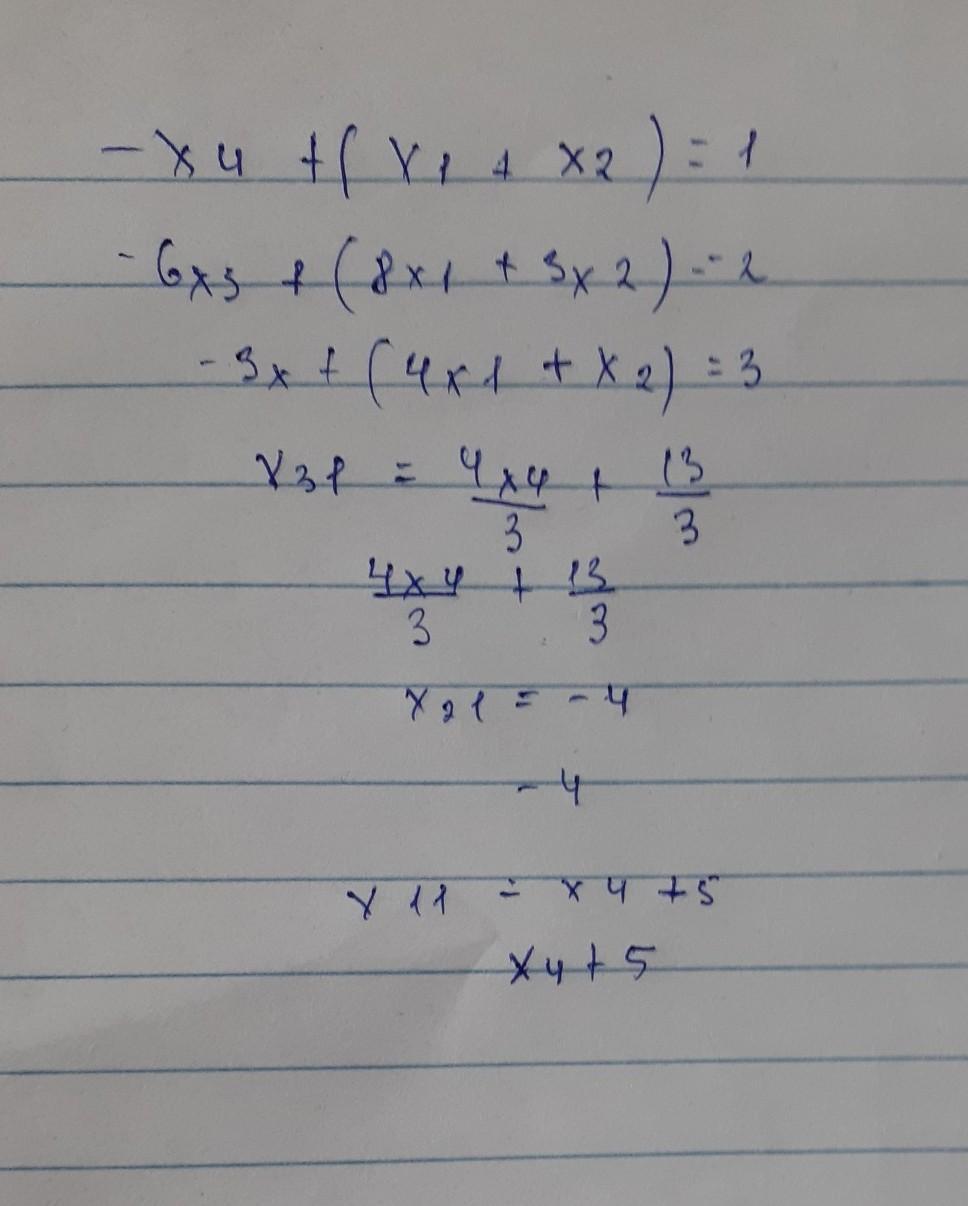 -x4 +(x1 + x2) = 1
-6x3 + (8x1 + 3x2) = -2
-3x + (4x1 + x2) = 3
x31 = 4x4/3 + 13/3
4x4/3 + 13/3
x21 = -4
-4
x11 = x4 +5
x4+5